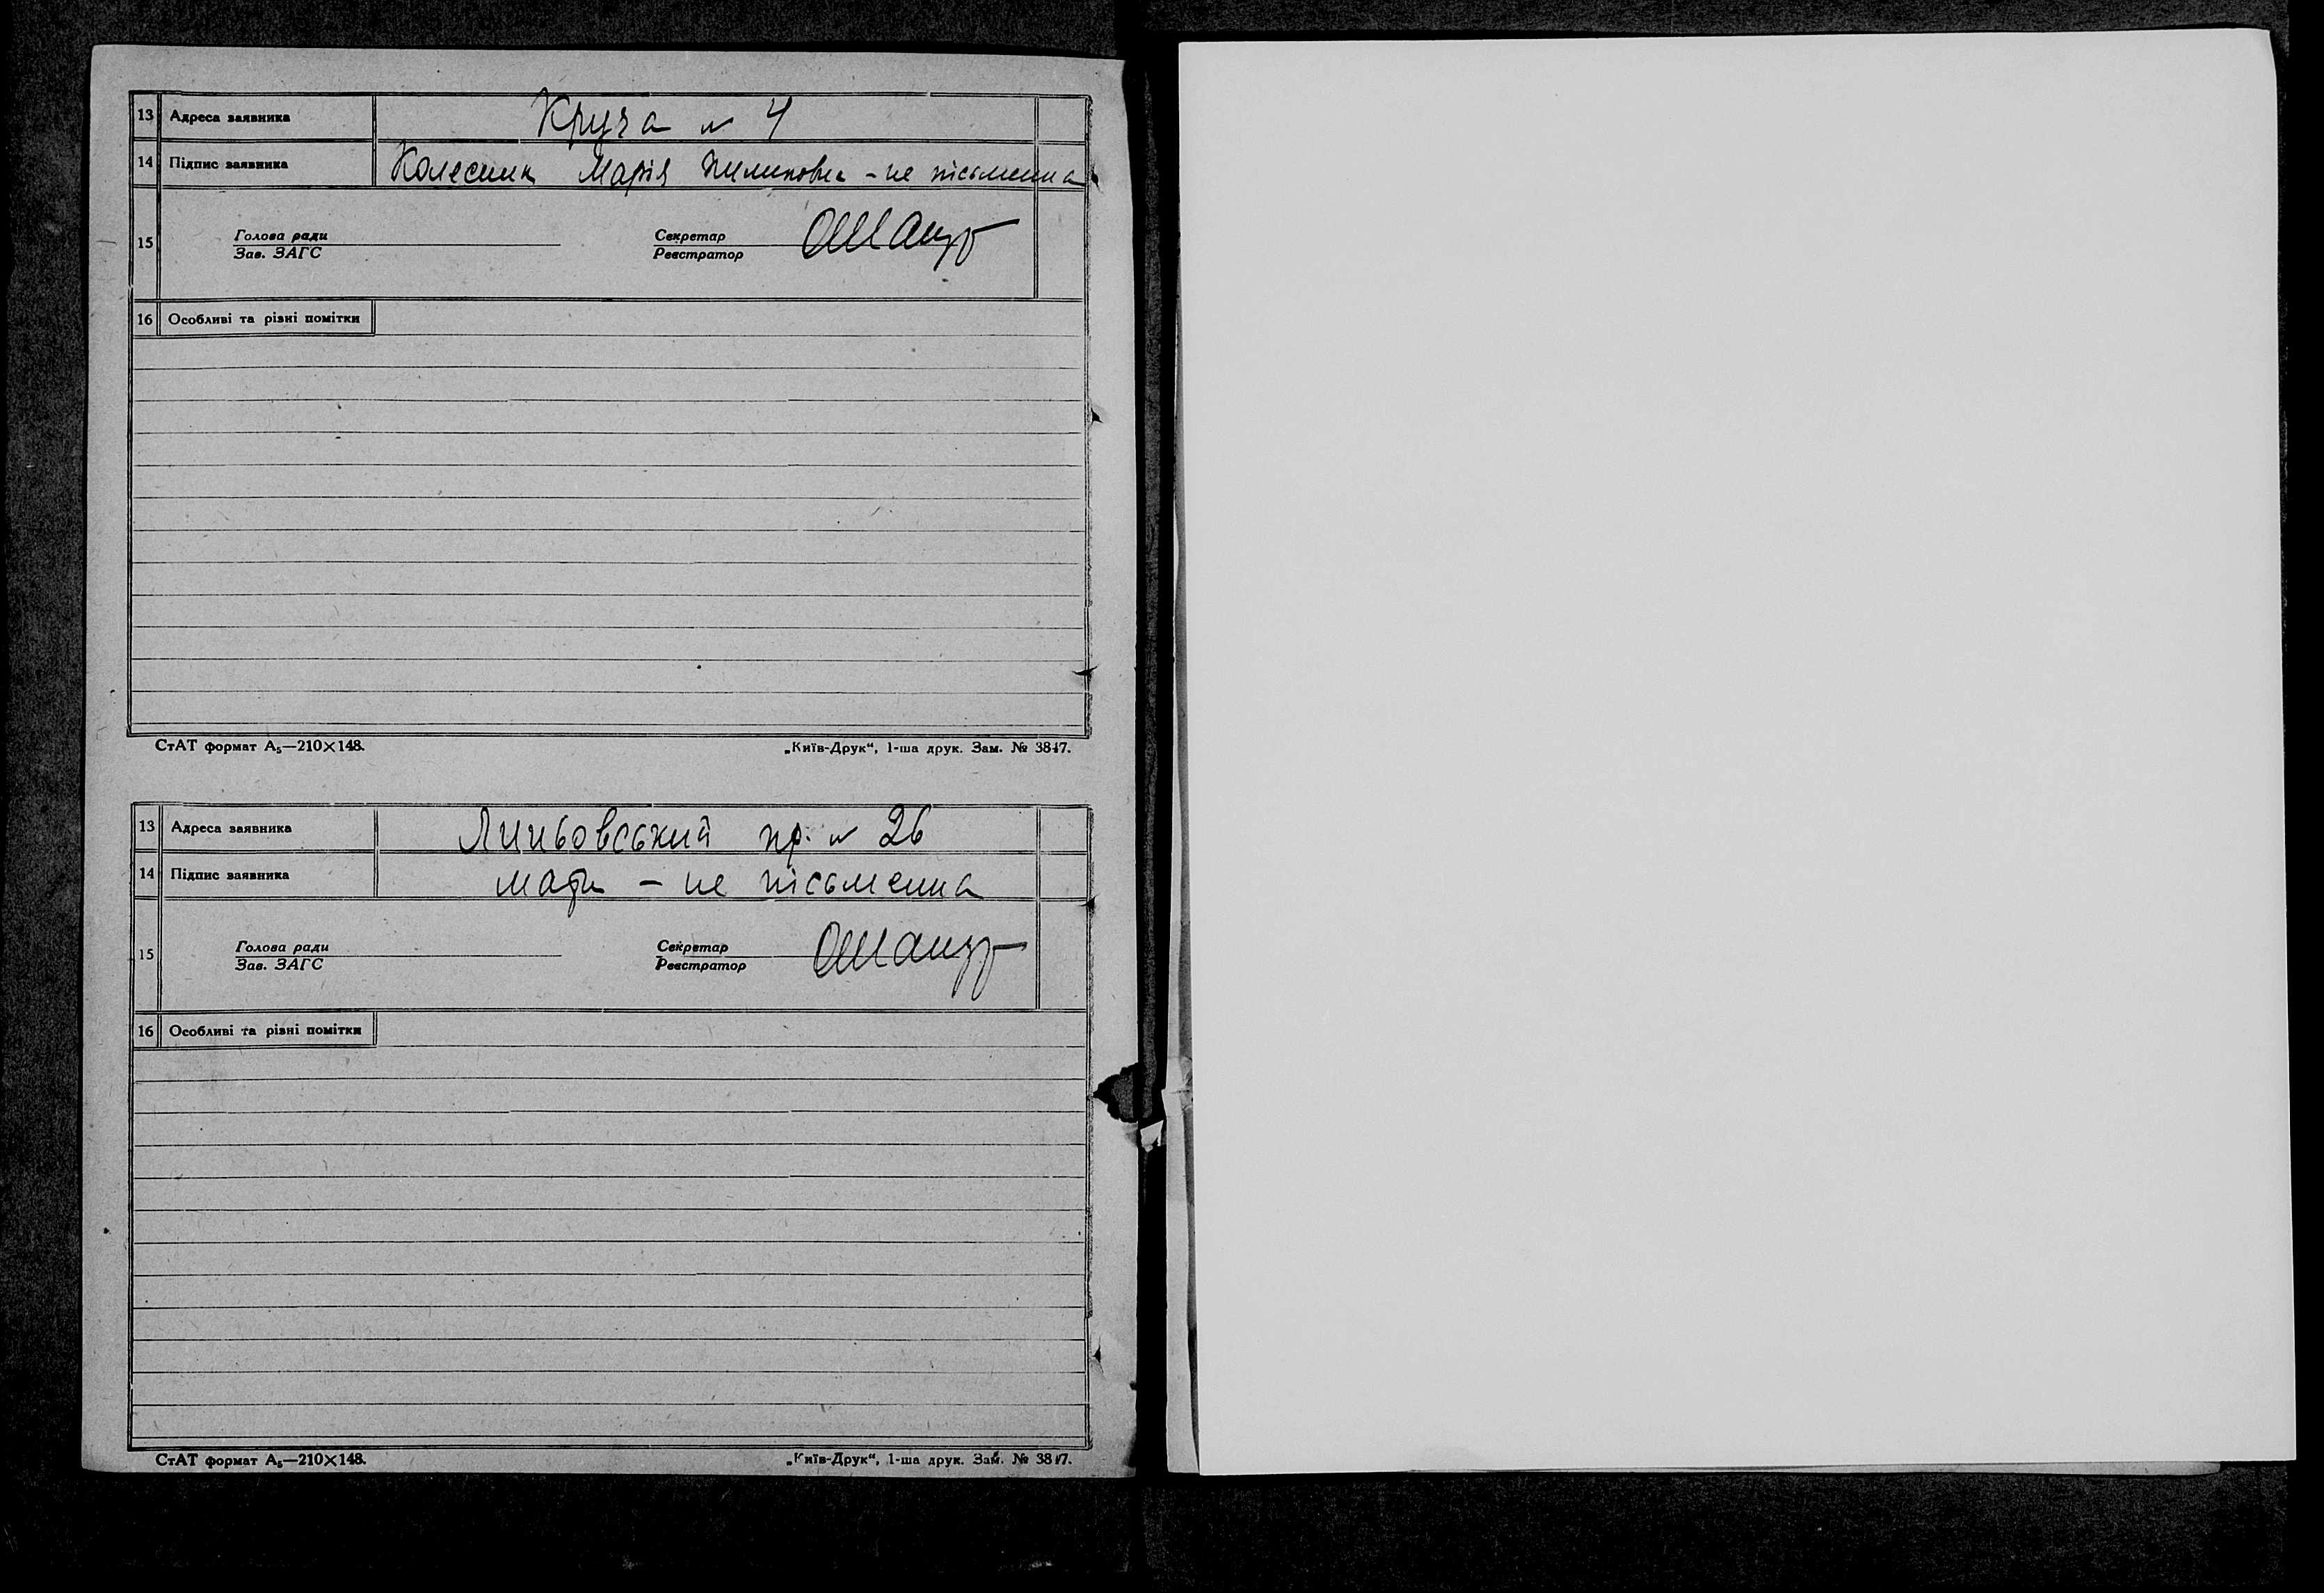 13 Адреса заявника Круча № 4
14 Підпис заявника Колесник Марія Пилиповна - не письменна
15 Голова ради Секретар
Зав. ЗАГС Реєстратор
16 Особливі та різні помітки
СтАТ формат А₅—210×148. „Київ-Друк“, 1-ша друк. Зам. № 3847.
13 Адреса заявника пр. № 26
14 Підпис заявника мати - не письменна
15 Голова ради Секретар
Зав. ЗАГС Реєстратор
16 Особливі та різні помітки
СтАТ формат А₅—210×148. „Київ-Друк“, 1-ша друк. Зам. № 3847.